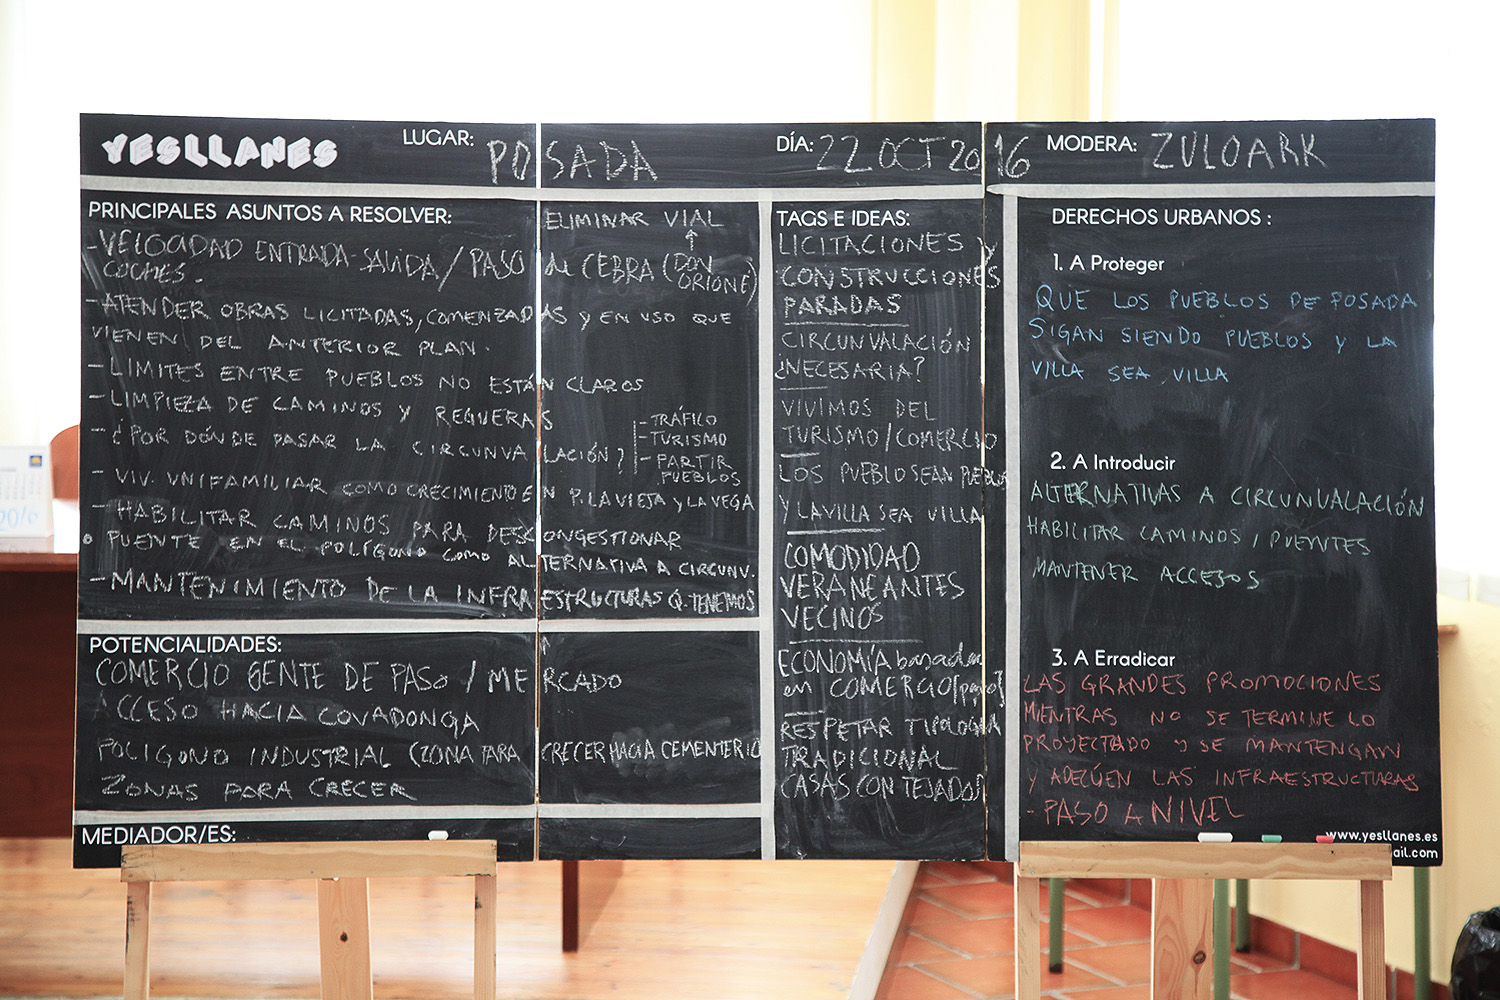 YESLLANES
LUGAR: POSADA
DÍA: 22 OCT 2016
MODERA: ZULOARK
PRINCIPALES ASUNTOS A RESOLVER:
ELIMINAR VIAL
↑
-VELOCIDAD ENTRADA-SALIDA / PASO de CEBRA (DON ORIONE)
COCHES.
-ATENDER OBRAS LICITADAS, COMENZADAS Y EN USO QUE
VIENEN DEL ANTERIOR PLAN.
-LÍMITES ENTRE PUEBLOS NO ESTÁN CLAROS
-LIMPIEZA DE CAMINOS Y REGUERAS
-¿POR DÓNDE PASAR LA CIRCUNVALACIÓN?
-TRÁFICO
-TURISMO
-PARTIR
PUEBLOS
-VIV. UNIFAMILIAR COMO CRECIMIENTO EN P. LA VIEJA Y LA VEGA
-HABILITAR CAMINOS PARA DESCONGESTIONAR
• PUENTE EN EL POLÍGONO COMO ALTERNATIVA A CIRCUNV.
-MANTENIMIENTO DE LA INFRAESTRUCTURAS Q. TENEMOS
POTENCIALIDADES:
COMERCIO GENTE DE PASO / MERCADO
ACCESO HACIA COVADONGA
POLÍGONO INDUSTRIAL (ZONA PARA CRECER HACIA CEMENTERIO
ZONAS PARA CRECER
MEDIADOR/ES:
TAGS E IDEAS:
LICITACIONES Y
CONSTRUCCIONES
PARADAS
CIRCUNVALACIÓN
¿NECESARIA?
VIVIMOS DEL
TURISMO/COMERCIO
LOS PUEBLO SEAN PUEBLOS
Y LA VILLA SEA VILLA
COMODIDAD
VERANEANTES
VECINOS
ECONOMÍA basada
en COMERCIO
RESPETAR TIPOLOGÍA
TRADICIONAL
CASAS CON TEJADOS
DERECHOS URBANOS :
1. A Proteger
QUE LOS PUEBLOS DE POSADA
SIGAN SIENDO PUEBLOS Y LA
VILLA SEA VILLA
2. A Introducir
ALTERNATIVAS A CIRCUNVALACIÓN
HABILITAR CAMINOS, PUENTES
MANTENER ACCESOS
3. A Erradicar
LAS GRANDES PROMOCIONES
MIENTRAS NO SE TERMINE LO
PROYECTADO Y SE MANTENGAN
Y ADECÚEN LAS INFRAESTRUCTURAS
- PASO A NIVEL
www.yesllanes.es
ail.com